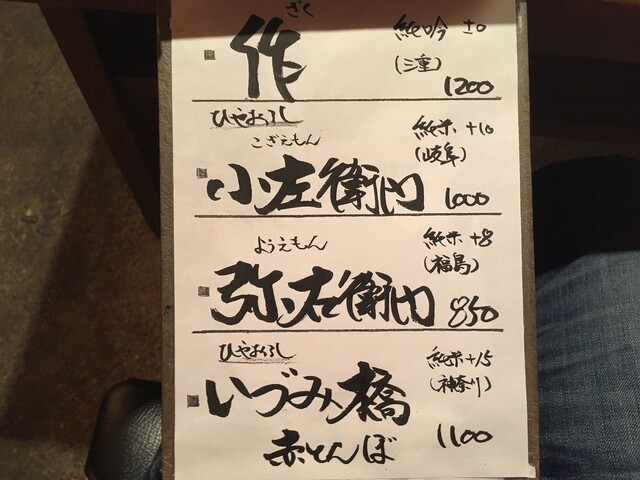 ざく
作
純吟 ±0
(三重)
1200
ひやおろし
こざえもん
小左衛門
純米 +10
(岐阜)
1000
ようえもん
弥右衛門
純米 +8
(福島)
850
ひやおろし
いづみ橋
赤とんぼ
純米 +15
(神奈川)
1100